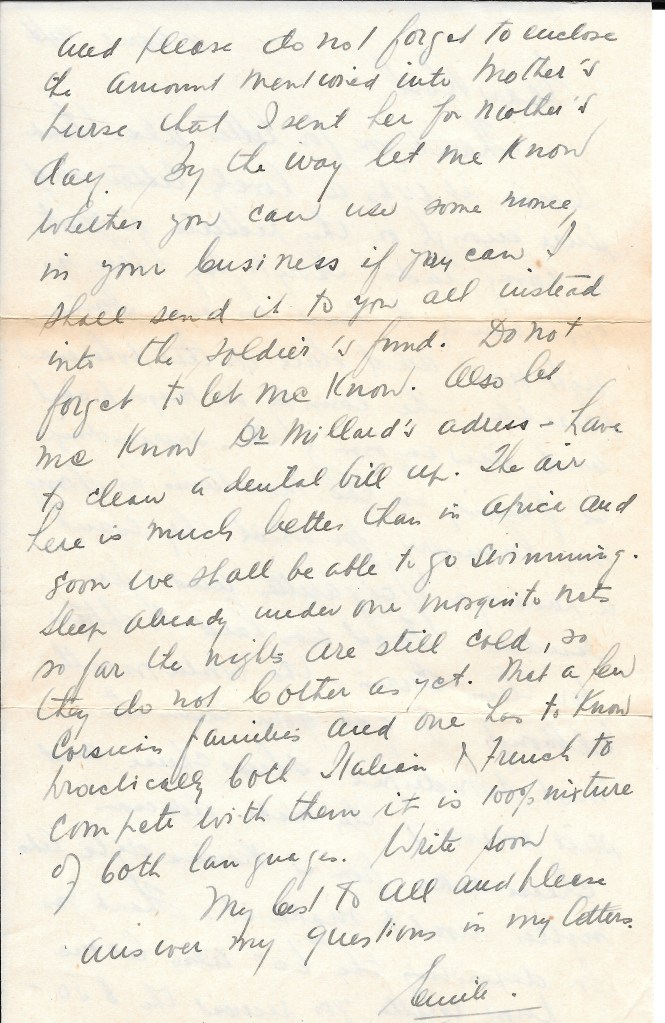 and please do not forget to enclose
the amount mentioned into Mother's
purse that I sent her for Mother's
day. By the way let me know
whether you can use some money
in your business if you can I
shall send it to you all instead
into the soldier's fund. Do not
forget to let me know. Also let
me know Dr Millard's adress - have
to clean a dental bill up. The air
here is much better than in Africa and
soon we shall be able to go swimming.
Sleep already under one mosquito nets
so far the nights are still cold, so
they do not bother as yet. Met a few
Corsican families and one has to know
practically both Italian & French to
compete with them it is 100% mixture
of both languages. Write soon
My best to all and please
answer my questions in my letters.
Emile.